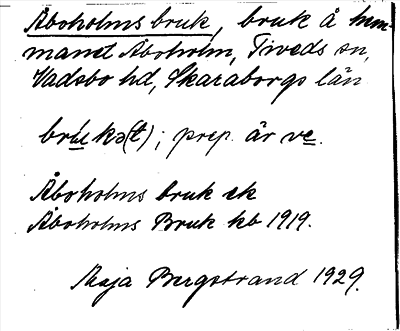 Åboholms bruk, bruk å hem-
manet Åboholm, Tiveds sn,
Vadsbo hd, Skaraborgs län
brukə(t); prep. är ve.
Åboholms bruk ek
Åboholms Bruk kb 1919.
Maja Bergstrand 1929.